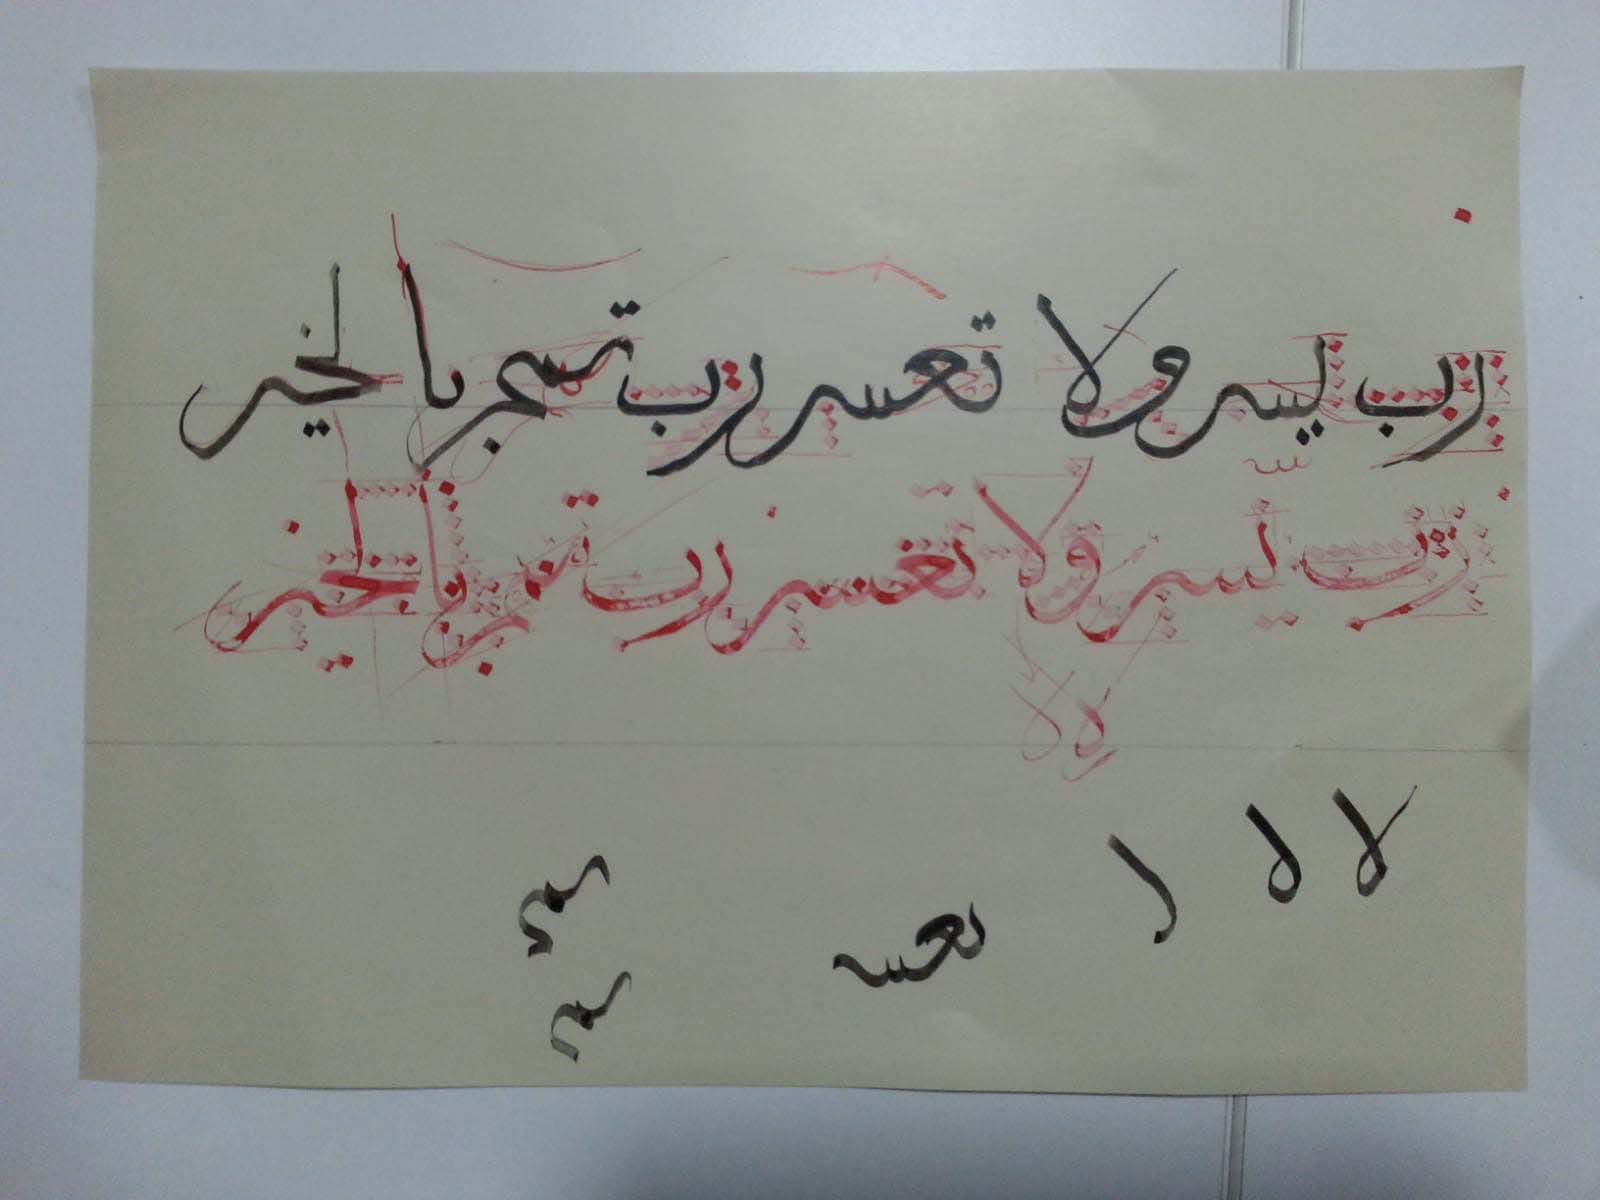 رب يسر ولا تعسر رب تمم بالخير
رب يسر ولا تعسر رب تمم بالخير
لا لا
لا لا ا
تعسر